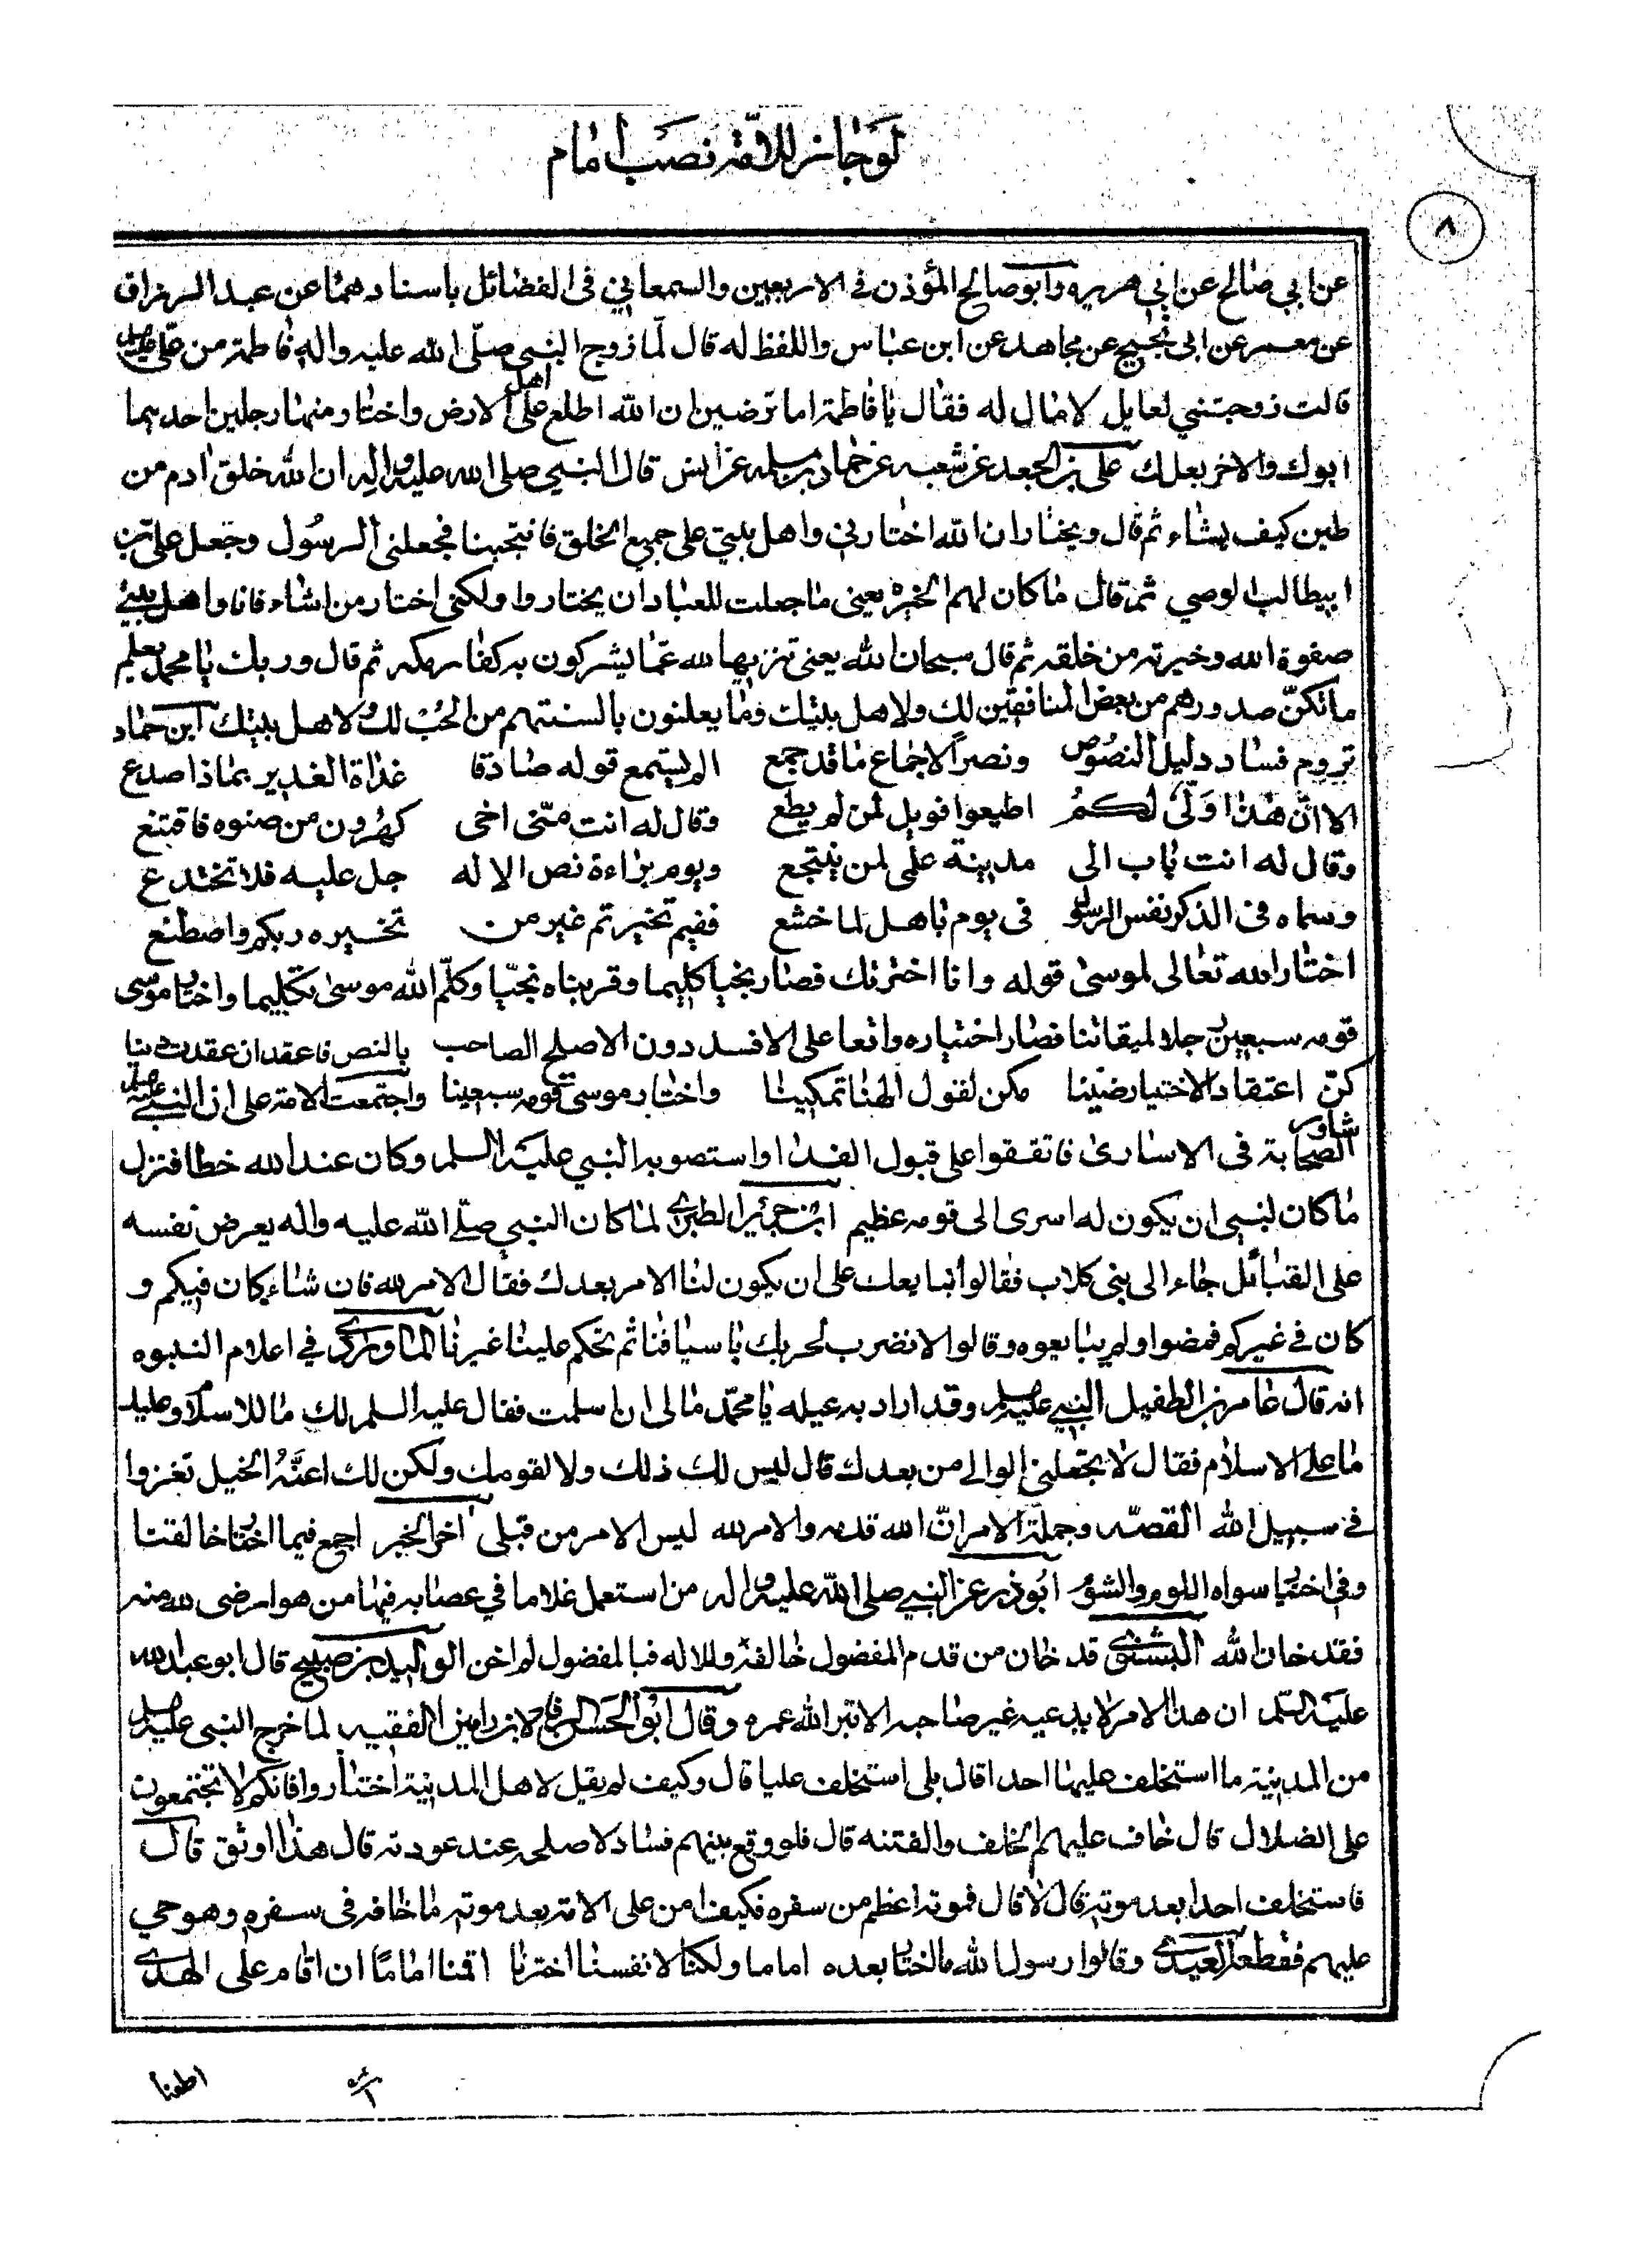 لو جاز للامة نصب امام
٨
عن ابي صالح عن ابي هريره وابو صالح المؤذن في الاربعين والسمعاني في الفضائل باسنادهما عن عبد الرزاق
عن معمر عن ابي نجيح عن مجاهد عن ابن عباس واللفظ له قال لما زوج النبي صلى الله عليه واله فاطمة من علي
قالت زوجتني لعايل لا مال له فقال يا فاطمة اما ترضين ان الله اطلع على اهل الارض واختار منها رجلين احدهما
ابوك والاخر بعلك علي بن الجعد عن شعبه عن حماد بن سلمه عن انس قال النبي صلى الله عليه واله ان الله خلق ادم من
طين كيف يشاء ثم قال ويختار ان الله اختارني واهل بيتي على جميع الخلق فانتجبنا فجعلني الرسول وجعل علي بن
ابيطالب الوصي ثم قال ما كان لهم الخيره يعني ما جعلت للعباد ان يختاروا ولكني اختار من اشاء فانا واهل بيتي
صفوة الله وخيرته من خلقه ثم قال سبحان الله يعني تنزيها لله عما يشركون به كفار مكه ثم قال وربك يا محمد يعلم
ما تكن صدورهم من بعض المنافقين لك ولاهل بيتك وما يعلنون بالسنتهم من الحب لك ولاهل بيتك ابن حماد
تروم فساد دليل النصوص ونصرا لاجماع ما قد جمع الم يستمع قوله صادقا غداة الغدير بماذا صدع
الا ان هذا ولي لكم اطيعوا فويل لمن لم يطع وقال له انت مني اخي كهرون من صنوه فاقتنع
وقال له انت باب الى مدينة علمي لمن ينتجع ويوم براءة نص الاله جل عليه فلا تختدع
وسماه في الذكر نفس الرسول في يوم باهل لما خشع ففيم تخيرتم غير من تخيره ربكم واصطنع
اختار الله تعالى لموسى قوله وانا اخترتك فصار نجيا كليما وقربناه نجيا وكلم الله موسى تكليما واختار موسى
قومه سبعين رجلا لميقاتنا فصار اختياره واقعا على الافسد دون الاصلح الصاحب بالنص فاعقد ان عقدت دينا
كن اعتقاد الاختيار ضنينا مكن لقول الهنا تمكينا واختار موسى قومه سبعينا واجتمعت الامة على ان النبي
شاور
الصحابة في الاسارى فاتفقوا على قبول الفداء واستصوبه النبي عليه السلم وكان عند الله خطا فنزل
ما كان لنبي ان يكون له اسرى الى قوله عظيم ابن جرير الطبري لما كان النبي صلى الله عليه واله يعرض نفسه
على القبائل جاء الى بني كلاب فقالوا نبايعك على ان يكون لنا الامر بعدك فقال الامر لله فان شاء كان فيكم و
كان في غيركم فمضوا ولم يبايعوه وقالوا لا نضرب لحربك باسيافنا ثم تحكم علينا غيرنا الماوردي في اعلام النبوه
انه قال عامر بن الطفيل النبي وقد اراد به غيله يا محمد ما لي ان اسلمت فقال عليه السلم لك ما للاسلام وعليك
ما على الاسلام فقال لا تجعلني الوالي من بعدك قال ليس لك ذلك ولا لقومك ولكن لك اعنة الخيل تغزوا
في سبيل الله القصه وجملة الامر ان الله قدمه والامر لله ليس الامر من قبلي اخر الخبر اجمع فيما اختار خالقنا
وفي اختيار سواه اللوم والشوم ابوذر عن النبي صلى الله عليه واله من استعمل غلاما في عصابه فيها من هو ارضى لله منه
فقد خان الله البشنوي قد خان من قدم المفضول خالقه وللاله فبالمفضول لم اخن الوليد بن صبيح قال ابو عبد الله
عليه السلم ان هذا الامر لا يدعيه غير صاحبه الا بتر الله عمره وقال ابو الحسن الرفا لابن رامين الفقيه لما خرج النبي
من المدينة ما استخلف عليها احدا قال بلى استخلف عليا قال وكيف لم يقل لاهل المدينة اختاروا فانكم لا تجتمعون
على الضلال قال خاف عليهم الخلف والفتنه قال فلو وقع بينهم فساد لاصلحه عند عودته قال هذا اوثق قال
فاستخلف احدا بعد موته قال لا قال فموته اعظم من سفره فكيف امن على الامة بعد موته ما خافه في سفره وهو حي
عليهم فقطعه العبدي وقالوا رسول الله ما اختار بعده اماما ولكنا لانفسنا اخترنا اقمنا اماما ان اقام على الهدى
اطعنا